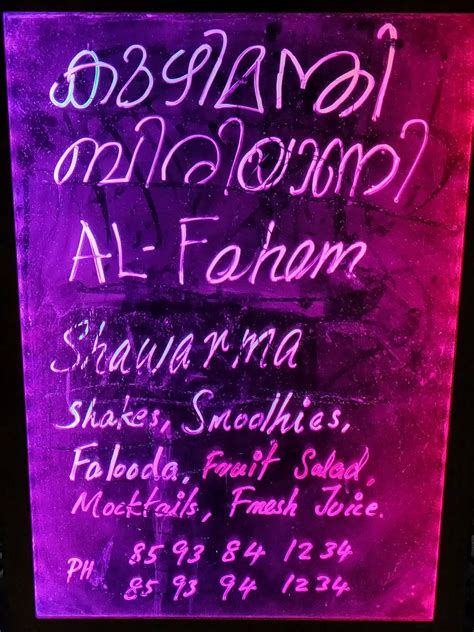 കുഴിമന്തി
ബിരിയാണി
AL-Fahem
Shawarma
Shakes, Smoothies,
Falooda, Fruit Salad,
Mocktails, Fresh Juice.
PH 85 93 84 1234
85 93 94 1234